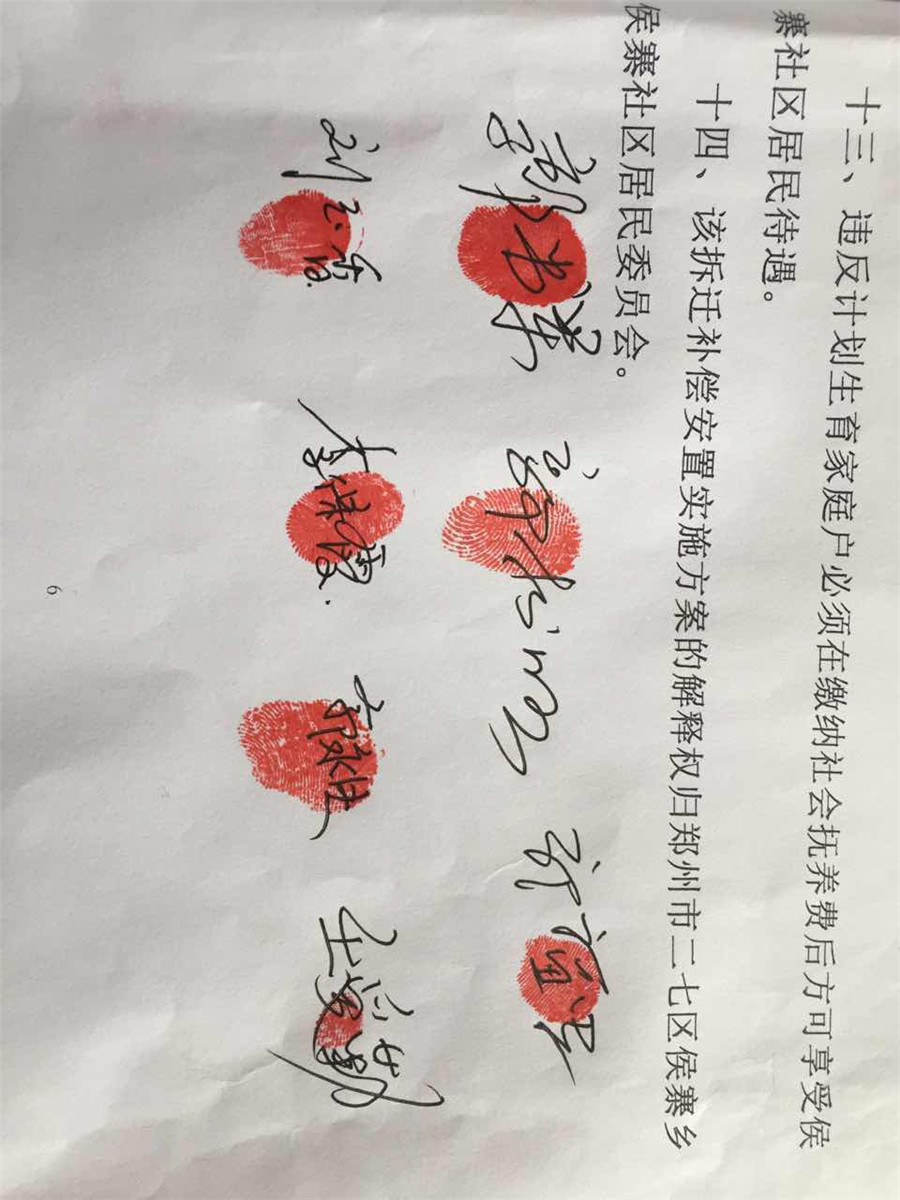 十三、违反计划生育家庭户必须在缴纳社会抚养费后方可享受侯
寨社区居民待遇。
十四、该拆迁补偿安置实施方案的解释权归郑州市二七区侯寨乡
侯寨社区居民委员会。
6